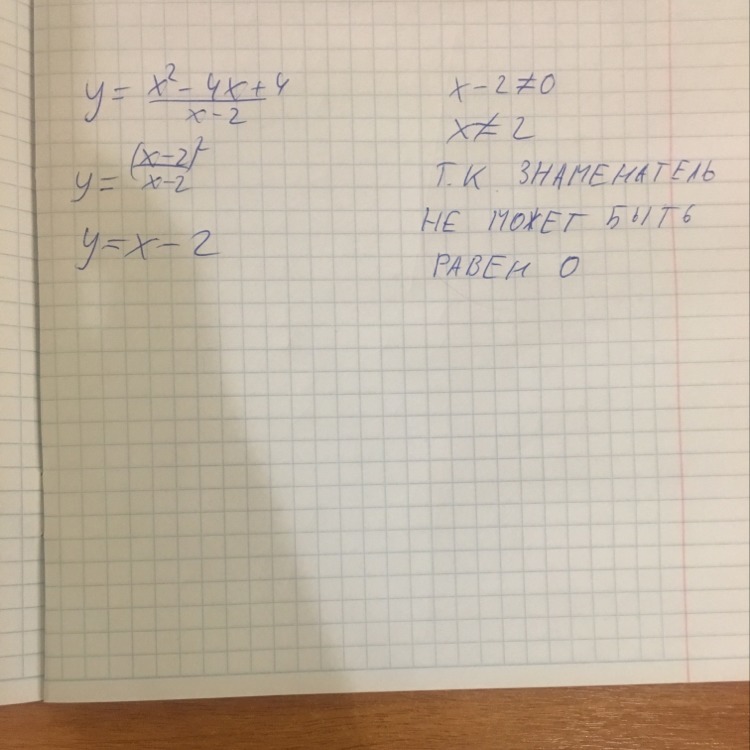 y = (x² - 4x + 4)/(x - 2)
y = (x-2)²/(x-2)
y = x - 2
x - 2 ≠ 0
x ≠ 2
Т.К ЗНАМЕНАТЕЛЬ
НЕ МОЖЕТ БЫТЬ
РАВЕН 0